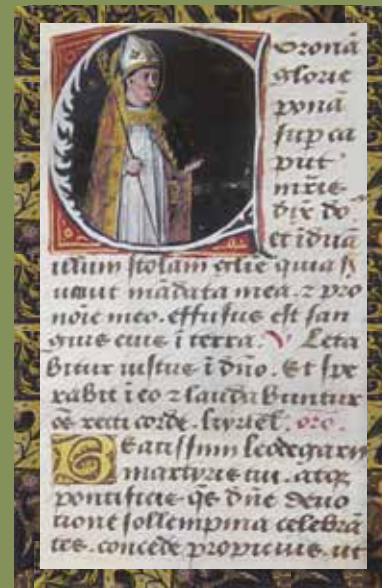 Coronā
glorie
ponā
sup ca
put
mr̄is
dix̄ do.
et īduā
illum stolam glīe quia s
uauit mādata mea. ⁊ pro
noīe meo. effusus est san
guis eius ī terra. ℣ Leta
bitur iustus ī dn̄o. Et spe
rabit ī eo ⁊ laudabuntur
oēs recti corde. kyriel̄. orō.
Beatissimi leodegarii
martyris tui. atqꝫ
pontificis qs̄ dn̄e deuo
tione sollempnia celebrā
tes. concede propicius. ut